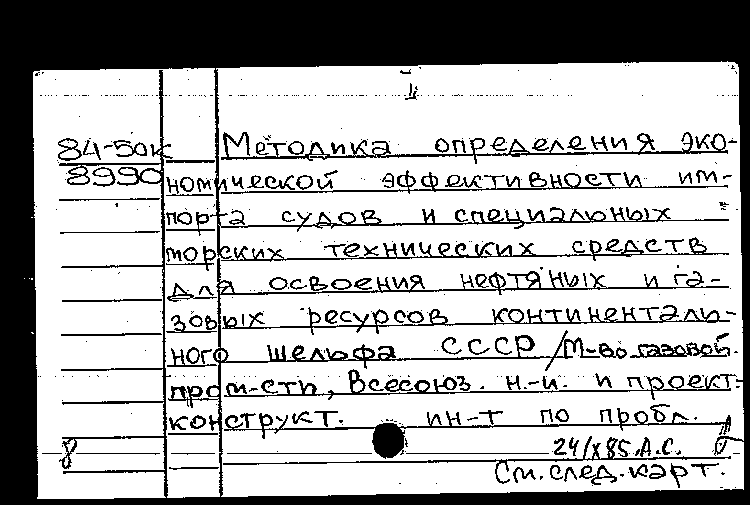 84-50к Методика определения эко-
8990 номической эффективности им-
порта судов и специальных
морских технических средств
для освоения нефтяных и га-
зовых ресурсов континенталь-
ного шельфа СССР /М-во газовой
пром-сти, Всесоюз. н.-и. и проект-
конструкт. ин-т по пробл.
8 24/X 85.А.С.
См. след. карт.